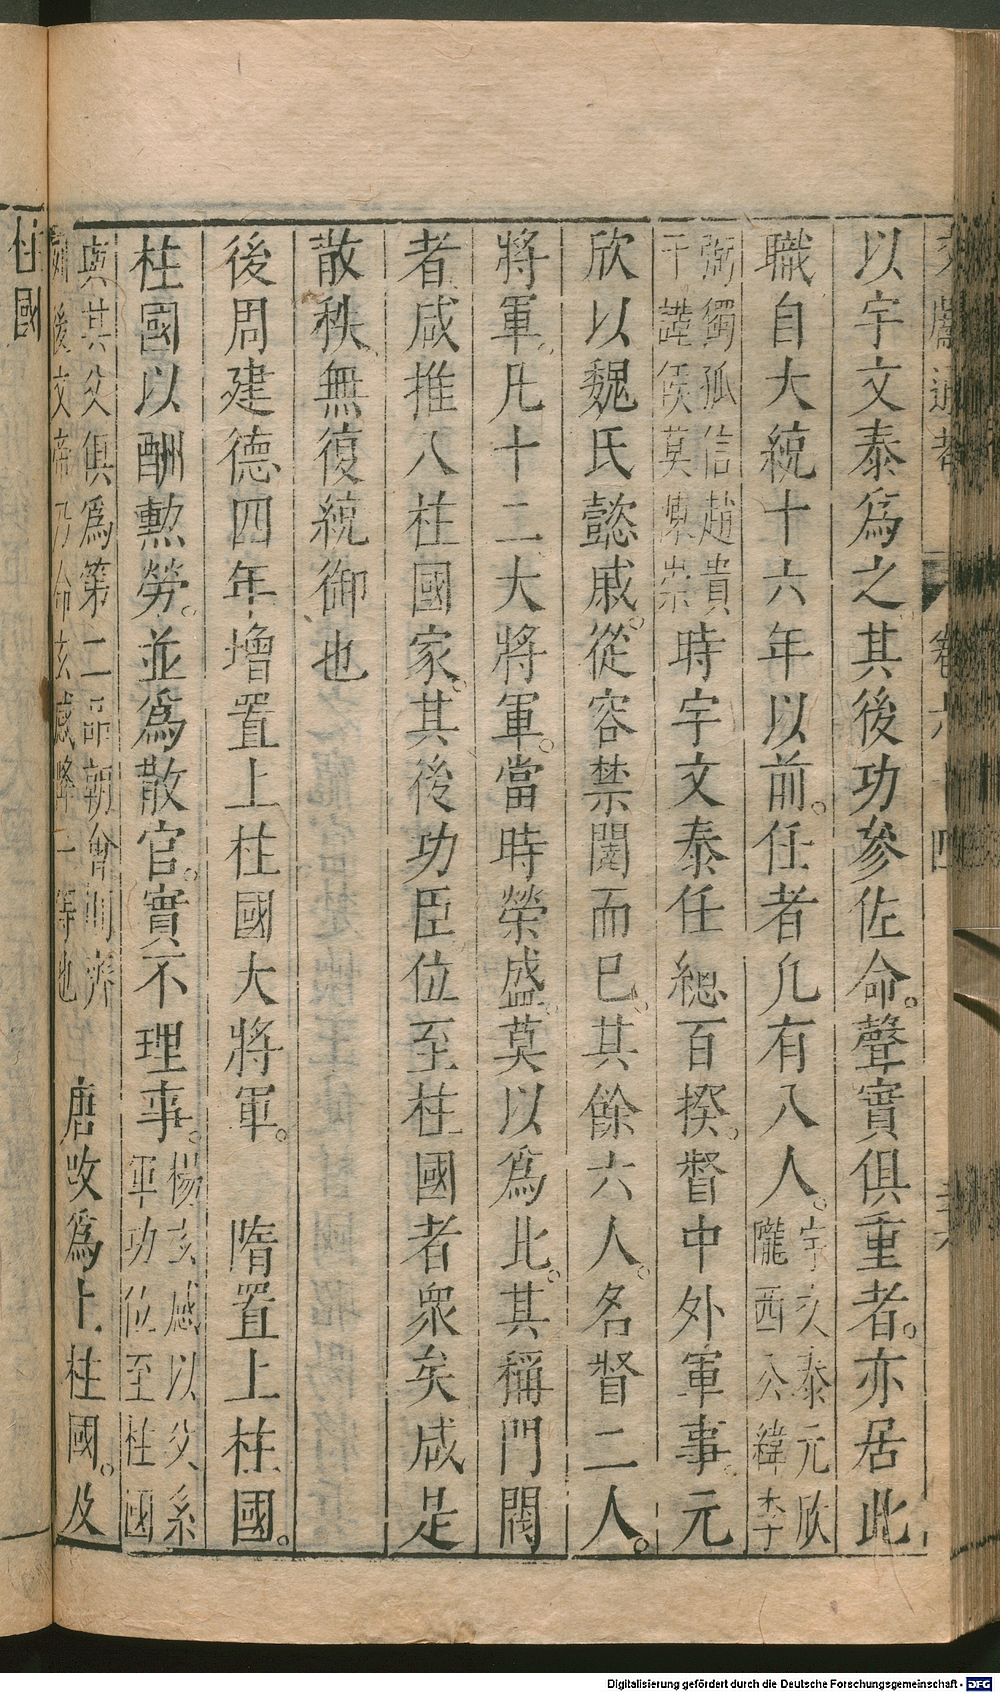 文獻通考 卷六十四
以宇文泰爲之其後功參佐命。聲實俱重者。亦居此
職自大統十六年以前。任者凡有八人。宇文泰元欣隴西公緯李
弼獨孤信趙貴于謹侯莫陳崇時宇文泰任總百揆。督中外軍事。元
欣以魏氏懿戚。從容禁闥而已。其餘六人。名督二人。
將軍。凡十二大將軍。當時榮盛。莫以爲比。其稱門閥
者咸推八柱國家。其後功臣位至柱國者衆矣咸是
散秩。無復統御也
後周建德四年增置上柱國大將軍。 隋置上柱國。
柱國以酬勲勞。並爲散官。實不理事。楊玄感以父系軍功位至柱國
與其父俱爲第二品朝會則齊列後文帝乃命玄感降一等也 唐改爲上柱國。及
柱國
Digitalisierung gefördert durch die Deutsche Forschungsgemeinschaft - DFG